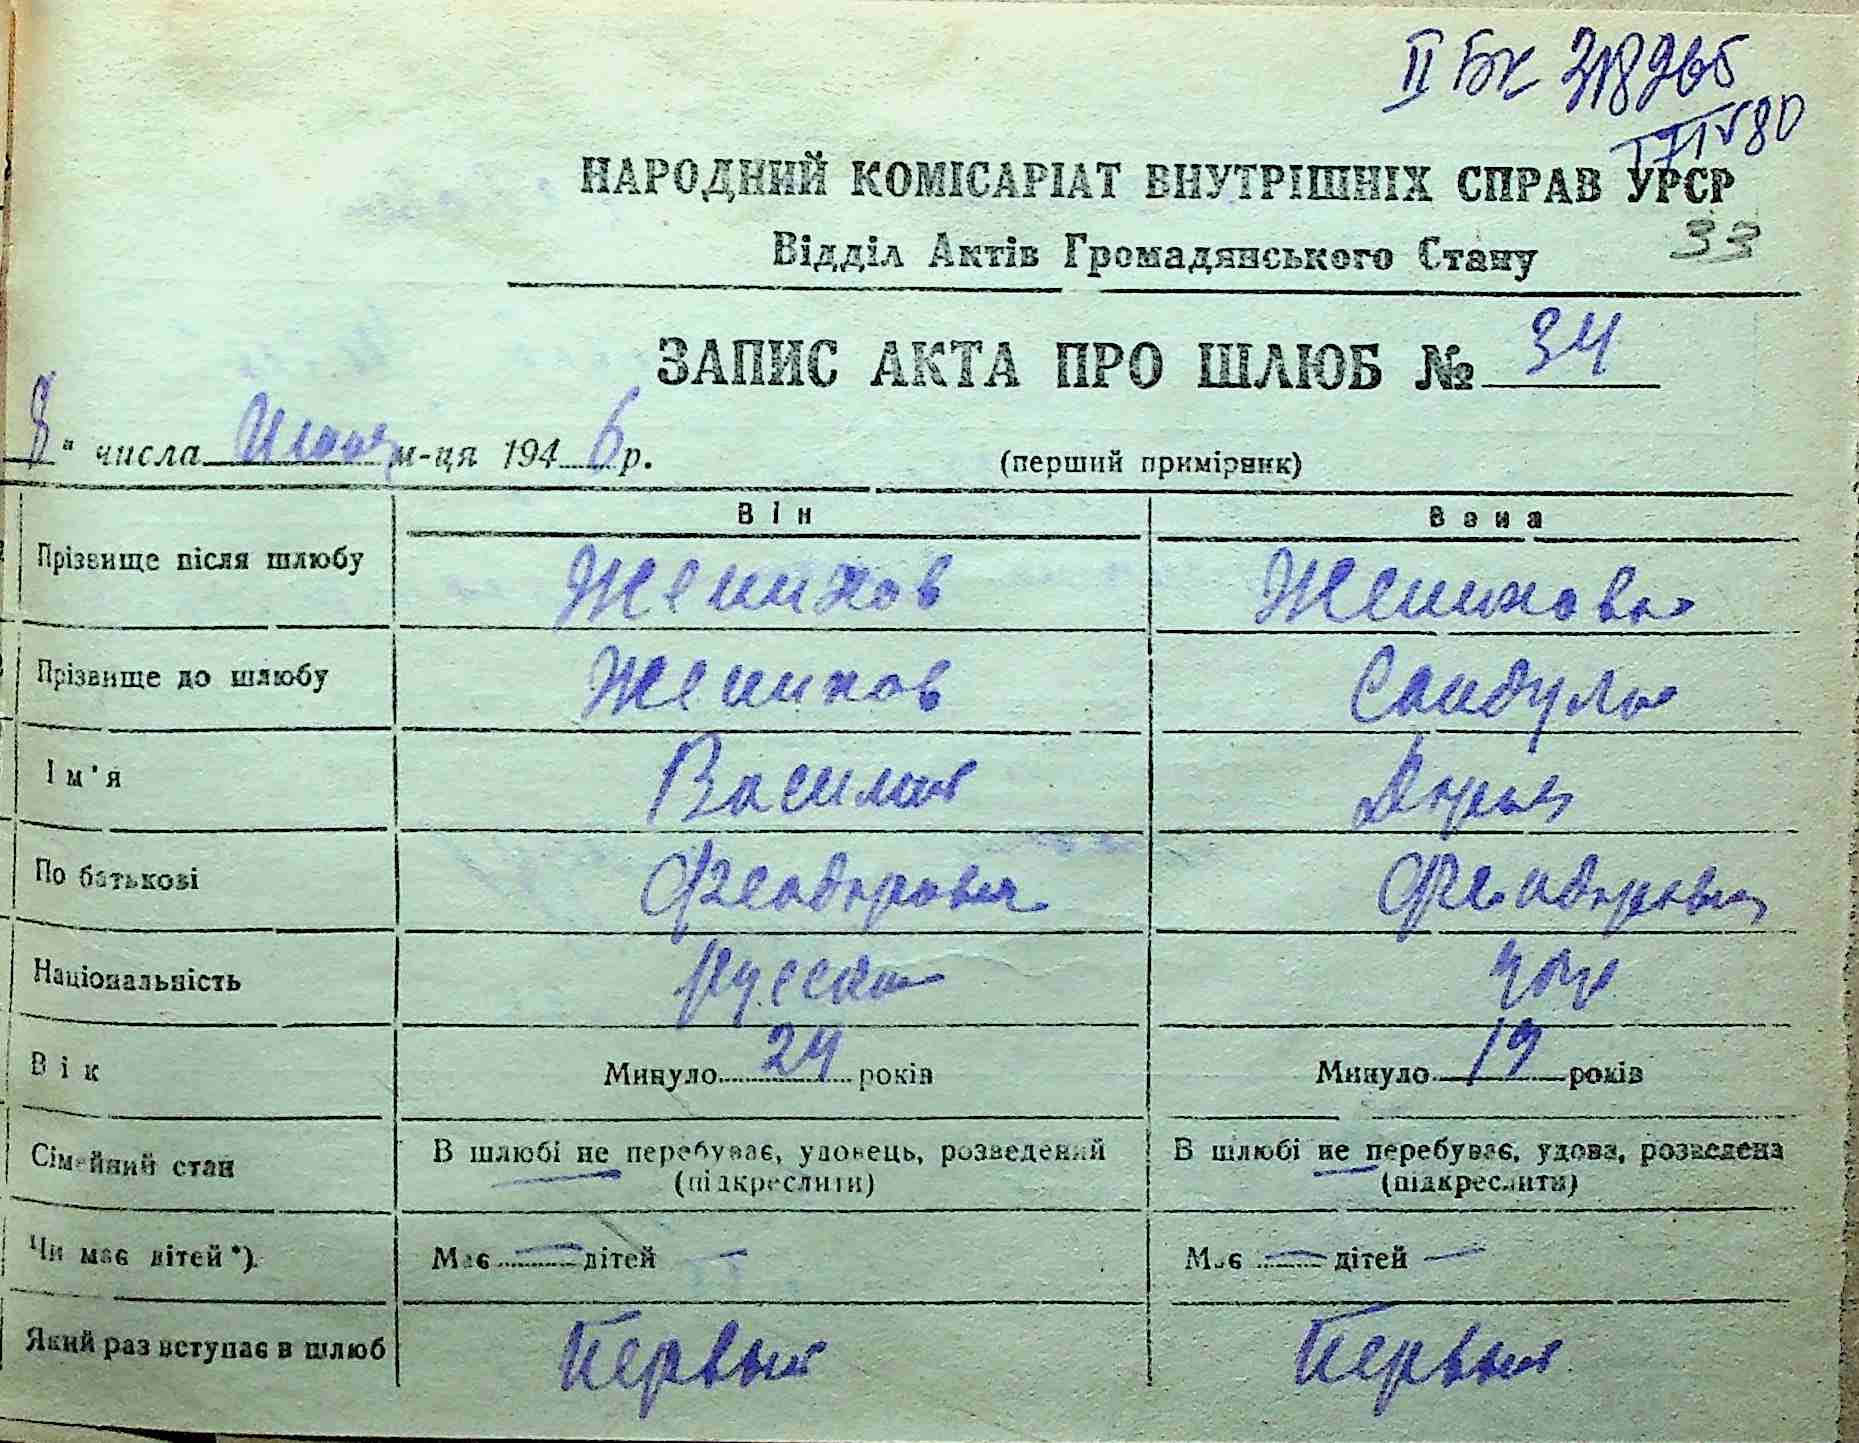 II БК 318265
17 IV 80
НАРОДНИЙ КОМІСАРІАТ ВНУТРІШНІХ СПРАВ УРСР
33
Відділ Актів Громадянського Стану
ЗАПИС АКТА ПРО ШЛЮБ № 34
8 " числа м-ця 1946 р. (перший примірник)
Він Вона
Прізвище після шлюбу Женихов Женихова
Прізвище до шлюбу Женихов Сандула
Ім'я Василий Дарья
По батькові Феодорович Феодоровна
Національність русский укр
Вік Минуло 24 років Минуло 19 років
Сімейний стан В шлюбі не перебуває, удовець, розведений (підкреслити) В шлюбі не перебуває, удова, розведена (підкреслити)
Чи має дітей *). Має — дітей — Має — дітей —
Який раз вступає в шлюб Первый Первый